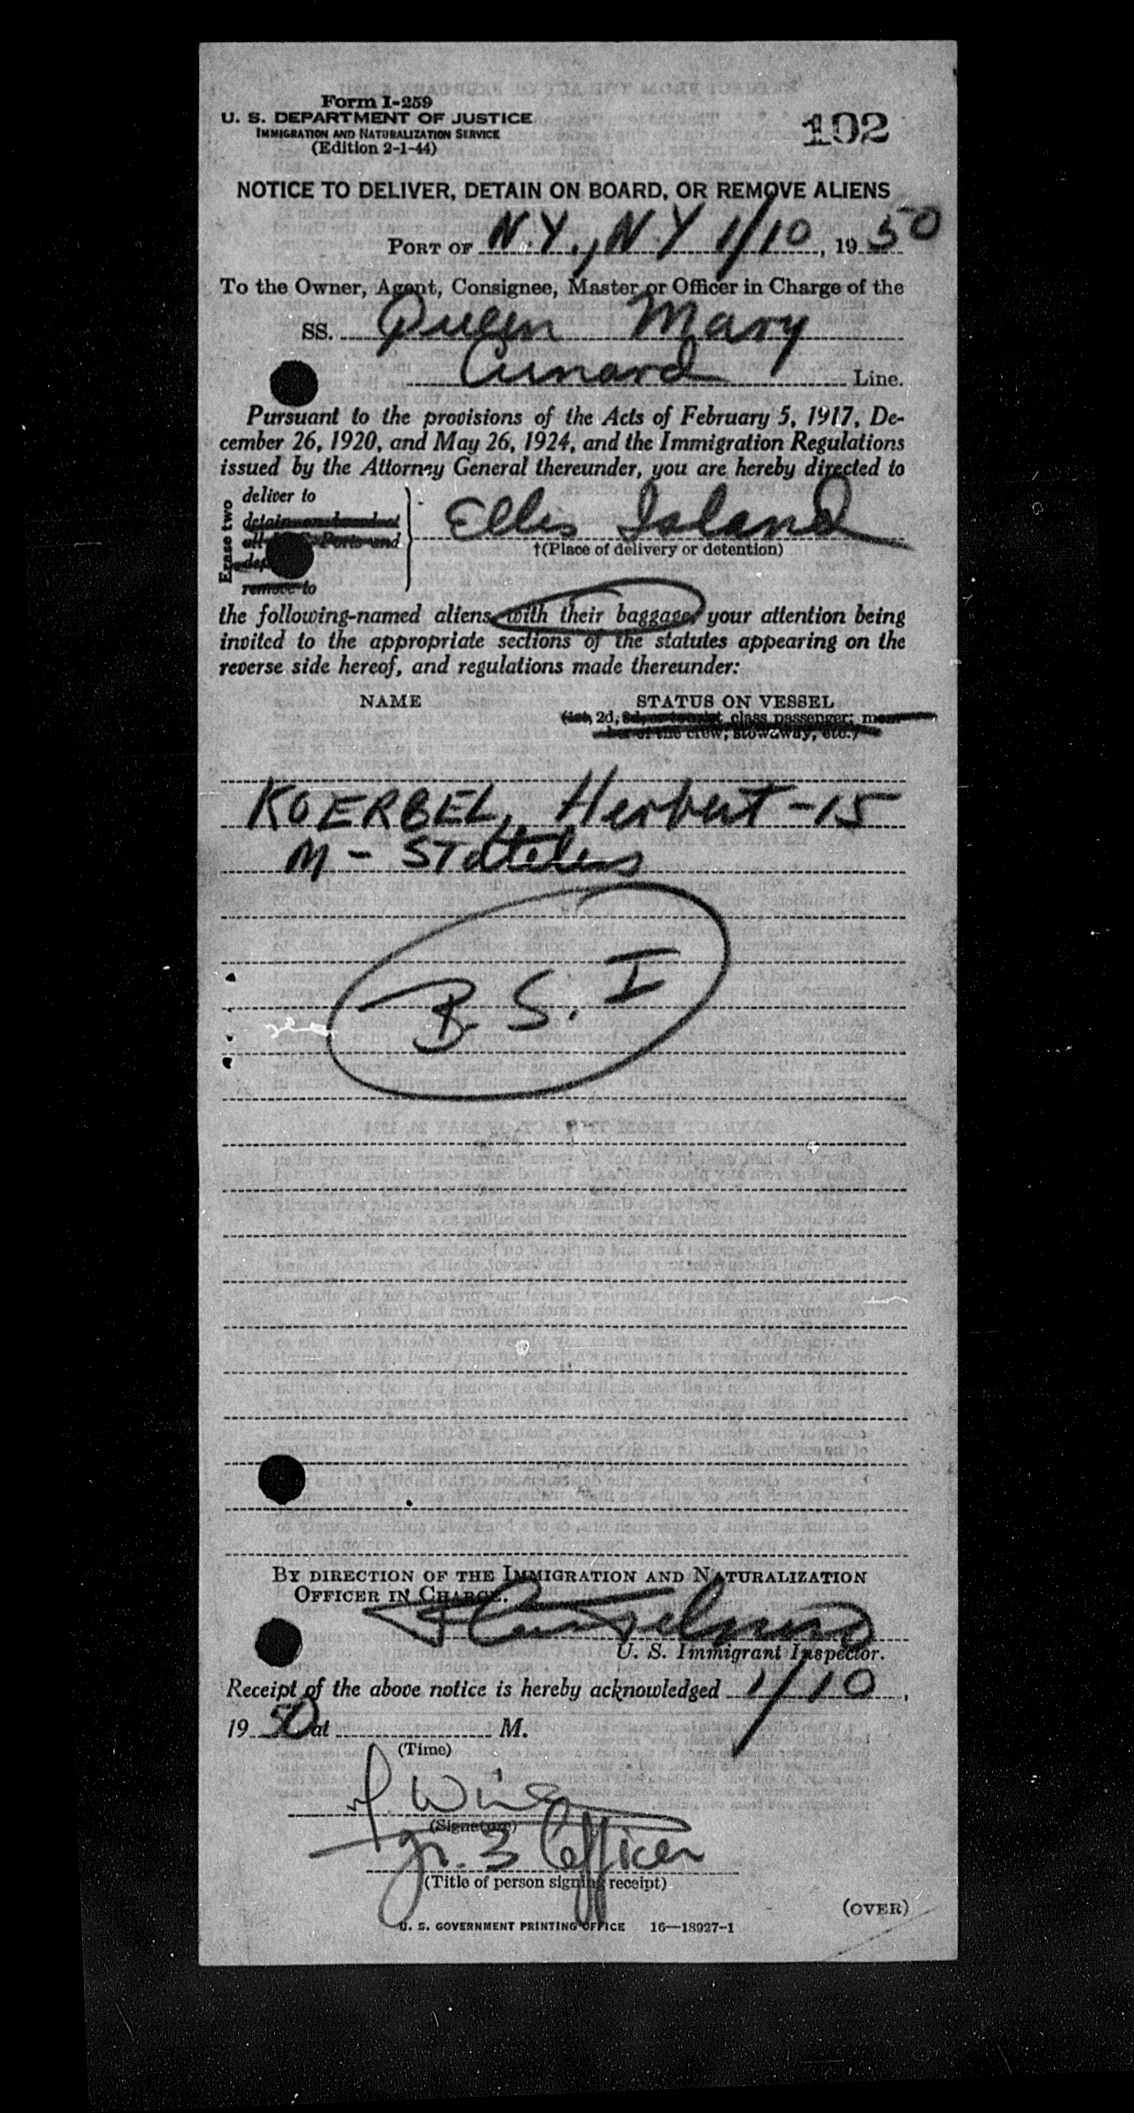 Form I-259
U. S. DEPARTMENT OF JUSTICE
IMMIGRATION AND NATURALIZATION SERVICE
(Edition 2-1-44)
102
NOTICE TO DELIVER, DETAIN ON BOARD, OR REMOVE ALIENS
PORT OF N.Y., N.Y 1/10, 1950
To the Owner, Agent, Consignee, Master or Officer in Charge of the
SS. Queen Mary
Cunard Line.
Pursuant to the provisions of the Acts of February 5, 1917, De-
cember 26, 1920, and May 26, 1924, and the Immigration Regulations
issued by the Attorney General thereunder, you are hereby directed to
Erase two
deliver to
detain on board at
all Ports and
remove to
Ellis Island
†(Place of delivery or detention)
the following-named aliens, with their baggage, your attention being
invited to the appropriate sections of the statutes appearing on the
reverse side hereof, and regulations made thereunder:
NAME
STATUS ON VESSEL
(1st, 2d, 3d, or tourist class passenger; mem-
ber of the crew, stowaway, etc.)
KOERBEL, Herbert - 15
M - Stateless
B. S. I
BY DIRECTION OF THE IMMIGRATION AND NATURALIZATION
OFFICER IN CHARGE.
U. S. Immigrant Inspector.
Receipt of the above notice is hereby acknowledged 1/10,
1950 at M.
(Time)
(Signature)
Jr. 3 Officer
(Title of person signing receipt)
(OVER)
U. S. GOVERNMENT PRINTING OFFICE 16—18927-1